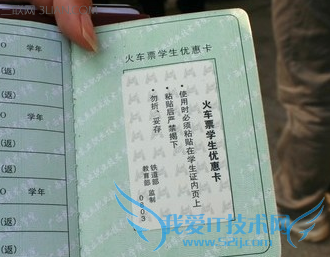 学年
(返)
(返)
学年
(返)
(返)
火车票学生优惠卡
火车票学生优惠卡
·使用时必须粘贴在学生证内页上
·粘贴后严禁揭下
·勿折、妥存。
铁道部
教育部
监制
0803
我爱IT技术网